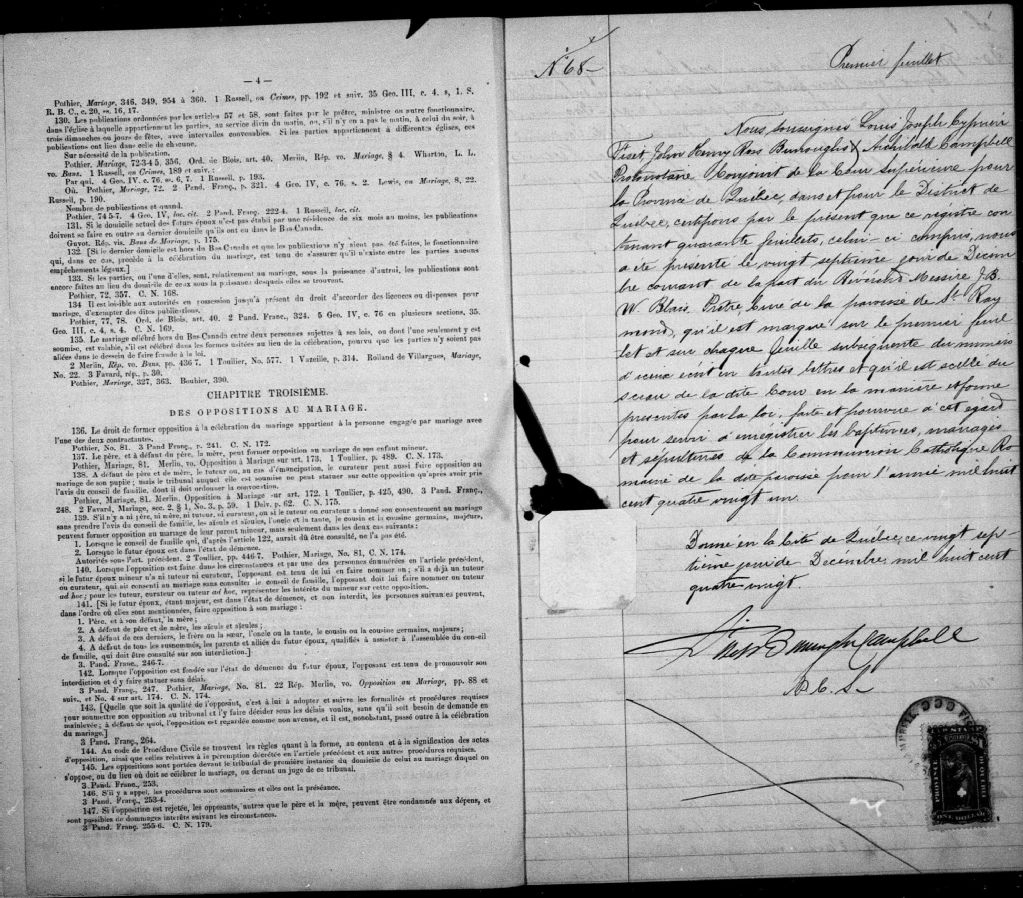 — 4 —
Pothier, Mariage, 346, 349, 954 à 360. 1 Russell, on Crimes, pp. 192 et suiv. 35 Geo. III, c. 4. s, 1. S.
R. B. C., c. 20, ss. 16, 17.
130. Les publications ordonnées par les articles 57 et 58, sont faites par le prêtre, ministre ou autre fonctionnaire,
dans l'église à laquelle appartiennent les parties, au service divin du matin, ou, s'il n'y en a pas le matin, à celui du soir, à
trois dimanches ou jours de fêtes, avec intervalles convenables. Si les parties appartiennent à différentes églises, ces
publications ont lieu dans celle de chacune.
Sur nécessité de la publication.
Pothier, Mariage, 72-3-4-5, 356, Ord. de Blois, art. 40. Merlin, Rép. vo. Mariage, § 4. Wharton, L. L.
vo. Bans. 1 Russell, on Crimes, 189 et suiv. :
Par qui. 4 Geo. IV. c. 76, ss. 6, 7. 1 Russell, p. 193.
Où. Pothier, Mariage, 72. 2 Pand. Franç., p. 321. 4 Geo. IV, c. 76, s. 2. Lewis, on Mariage, 8, 22.
Russell, p. 190.
Nombre de publications et quand.
Pothier, 74 5-7. 4 Geo. IV, loc. cit. 2 Pand. Franç., 222-4. 1 Russell, loc. cit.
131. Si le domicile actuel des futurs époux n'est pas établi par une résidence de six mois au moins, les publications
doivent se faire en outre au dernier domicile qu'ils ont eu dans le Bas-Canada.
Guyot. Rép. vis. Bans de Mariage, p. 175.
132. [Si le dernier domicile est hors du Bas-Canada et que les publications n'y aient pas été faites, le fonctionnaire
qui, dans ce cas, procède à la célébration du mariage, est tenu de s'assurer qu'il n'existe entre les parties aucuns
empêchements légaux.]
133. Si les parties, ou l'une d'elles, sont, relativement au mariage, sous la puissance d'autrui, les publications sont
encore faites au lieu du domicile de ceux sous la puissance desquels elles se trouvent.
Pothier, 72, 357. C. N. 168.
134 Il est loisible aux autorités en possession jusqu'à présent du droit d'accorder des licences ou dispenses pour
mariage, d'exempter des dites publications.
Pothier, 77, 78. Ord. de Blois, art. 40. 2 Pand. Franç., 324. 5 Geo. IV, c. 76 en plusieurs sections, 35.
Geo. III, c. 4, s. 4. C. N. 169.
135. Le mariage célébré hors du Bas-Canada entre deux personnes sujettes à ses lois, ou dont l'une seulement y est
soumise, est valable, s'il est célébré dans les formes usitées au lieu de la célébration, pourvu que les parties n'y soient pas
allées dans le dessein de faire fraude à la loi.
2 Merlin, Rép. vo. Bans, pp. 436 7. 1 Toullier, No. 577. 1 Vazeille, p. 314. Rolland de Villargues, Mariage,
No. 22. 3 Favard, rép., p. 30.
Pothier, Mariage, 327, 363. Bouhier, 390.
CHAPITRE TROISIÈME.
DES OPPOSITIONS AU MARIAGE.
136. Le droit de former opposition à la célébration du mariage appartient à la personne engagée par mariage avec
l'une des deux contractantes.
Pothier, No. 81. 3 Pand Franç., p. 241. C. N. 172.
137. Le père, et à défaut du père, la mère, peut former opposition au mariage de son enfant mineur.
Pothier, Mariage, 81. Merlin, vo. Opposition à Mariage sur art. 173. 1 Toullier, p. 489. C. N. 173.
138. A défaut de père et de mère, le tuteur ou, au cas d'émancipation, le curateur peut aussi faire opposition au
mariage de son pupille ; mais le tribunal auquel elle est soumise ne peut statuer sur cette opposition qu'après avoir pris
l'avis du conseil de famille, dont il doit ordonner la convocation.
Pothier, Mariage, 81. Merlin, Opposition à Mariage sur art. 172. 1 Toullier, p. 425, 490. 3 Pand. Franç.,
248. 2 Favard, Mariage, sec. 2. § 1, No. 3, p. 59. 1 Delv. p. 62. C. N. 175.
139. S'il n'y a ni père, ni mère, ni tuteur, ni curateur, ou si le tuteur ou curateur a donné son consentement au mariage
sans prendre l'avis du conseil de famille, les aïeuls et aïeules, l'oncle et la tante, le cousin et la cousine germains, majeurs,
peuvent former opposition au mariage de leur parent mineur, mais seulement dans les deux cas suivants :
1. Lorsque le conseil de famille qui, d'après l'article 122, aurait dû être consulté, ne l'a pas été.
2. Lorsque le futur époux est dans l'état de démence.
Autorités sous l'art. précédent. 2 Toullier, pp. 446-7. Pothier, Mariage, No. 81, C. N. 174.
140. Lorsque l'opposition est faite dans les circonstances et par une des personnes énumérées en l'article précédent,
si le futur époux mineur n'a ni tuteur ni curateur, l'opposant est tenu de lui en faire nommer un ; s'il a déjà un tuteur
ou curateur, qui ait consenti au mariage sans consulter le conseil de famille, l'opposant doit lui faire nommer un tuteur
ad hoc ; pour les tuteur, curateur ou tuteur ad hoc, représenter les intérêts du mineur sur cette opposition.
141. [Si le futur époux, étant majeur, est dans l'état de démence, et non interdit, les personnes suivantes peuvent,
dans l'ordre où elles sont mentionnées, faire opposition à son mariage :
1. Père, et à son défaut, la mère ;
2. A défaut de père et de mère, les aïeuls et aïeules ;
3. A défaut de ces derniers, le frère ou la sœur, l'oncle ou la tante, le cousin ou la cousine germains, majeurs ;
4. A défaut de tous les susnommés, les parents et alliés du futur époux, qualifiés à assister à l'assemblée du conseil
de famille, qui doit être consulté sur son interdiction.]
3. Pand. Franç., 246-7.
142. Lorsque l'opposition est fondée sur l'état de démence du futur époux, l'opposant est tenu de promouvoir son
interdiction et d'y faire statuer sans délai.
3 Pand. Franç., 247. Pothier, Mariage, No. 81. 22 Rép. Merlin, vo. Opposition au Mariage, pp. 88 et
suiv., et No. 4 sur art. 174. C. N. 174.
143. [Quelle que soit la qualité de l'opposant, c'est à lui à adopter et suivre les formalités et procédures requises
pour soumettre son opposition au tribunal et l'y faire décider sous les délais voulus, sans qu'il soit besoin de demande en
mainlevée ; à défaut de quoi, l'opposition est regardée comme non avenue, et il est, nonobstant, passé outre à la célébration
du mariage.]
3 Pand. Franç., 264.
144. Au code de Procédure Civile se trouvent les règles quant à la forme, au contenu et à la signification des actes
d'opposition, ainsi que celles relatives à la péremption décrétée en l'article précédent et aux autres procédures requises.
145. Les oppositions sont portées devant le tribunal de première instance du domicile de celui au mariage duquel on
s'oppose, ou du lieu où doit se célébrer le mariage, ou devant un juge de ce tribunal.
3. Pand. Franç., 253.
146. S'il y a appel, les procédures sont sommaires et elles ont la préséance.
3 Pand. Franç., 253-4.
147. Si l'opposition est rejetée, les opposants, autres que le père et la mère, peuvent être condamnés aux dépens, et
sont passibles de dommages intérêts suivant les circonstances.
3 Pand. Franç. 255-6. C. N. 179.
No 68-
Premier feuillet
Nous, Soussignés Louis Joseph Cyprien
Fiset, John Henry Ross Burroughs & Archibald Campbell
Protonotaire Conjoint de la Cour Supérieure pour
la Province de Québec, dans et pour le District de
Québec, certifions par le présent que ce registre con
tenant quarante feuillets, celui-ci compris, nous
a été présenté le vingt septième jour de Décem
bre courant de la part du Révérend Messire J. B.
W. Blais, Prêtre, Curé de la paroisse de St. Ray
mond, qu'il est marqué sur le premier feuil
let et sur chaque feuille subséquente du numéro
d'iceux écrit en toutes lettres et qu'il est scellé du
sceau de la dite Cour en la manière et forme
présentes par la loi, faite et pourvue à cet égard
pour servir à enregistrer les baptêmes, mariages
et sépultures de la Communion Catholique Ro
maine de la dite paroisse pour l'année mil huit
cent quatre vingt un.
Donné en la Cité de Québec, ce vingt sep-
tième jour de Décembre, mil huit cent
quatre vingt
Fiset Burroughs Campbell
P. C. S.
PROVINCE
ONE DOLLAR